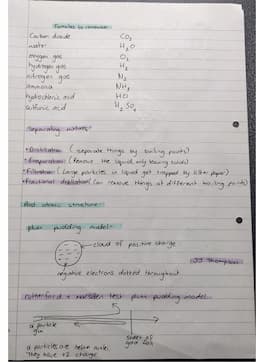 Formulas to remember
Carbon dioxide CO2
water H2O
oxygen gas O2
hydrogen gas H2
nitrogen gas N2
ammonia NH3
hydrochloric acid HCl
sulfuric acid H2SO4
Separating mixtures
•Distillation (separate things by boiling points)
•Evaporation (remove the liquid, only leaving solids)
•Filtration (Large particles in liquid get trapped by filter paper)
•Fractional distillation (can remove things at different boiling points)
atomic structure
plum pudding model
cloud of positive charge
JJ Thompson
negative electrons dotted throughout
rutherford + marsden test plum pudding model
α particle
gun
sheet of
gold
α particles are helium nuclei
They have +2 charge